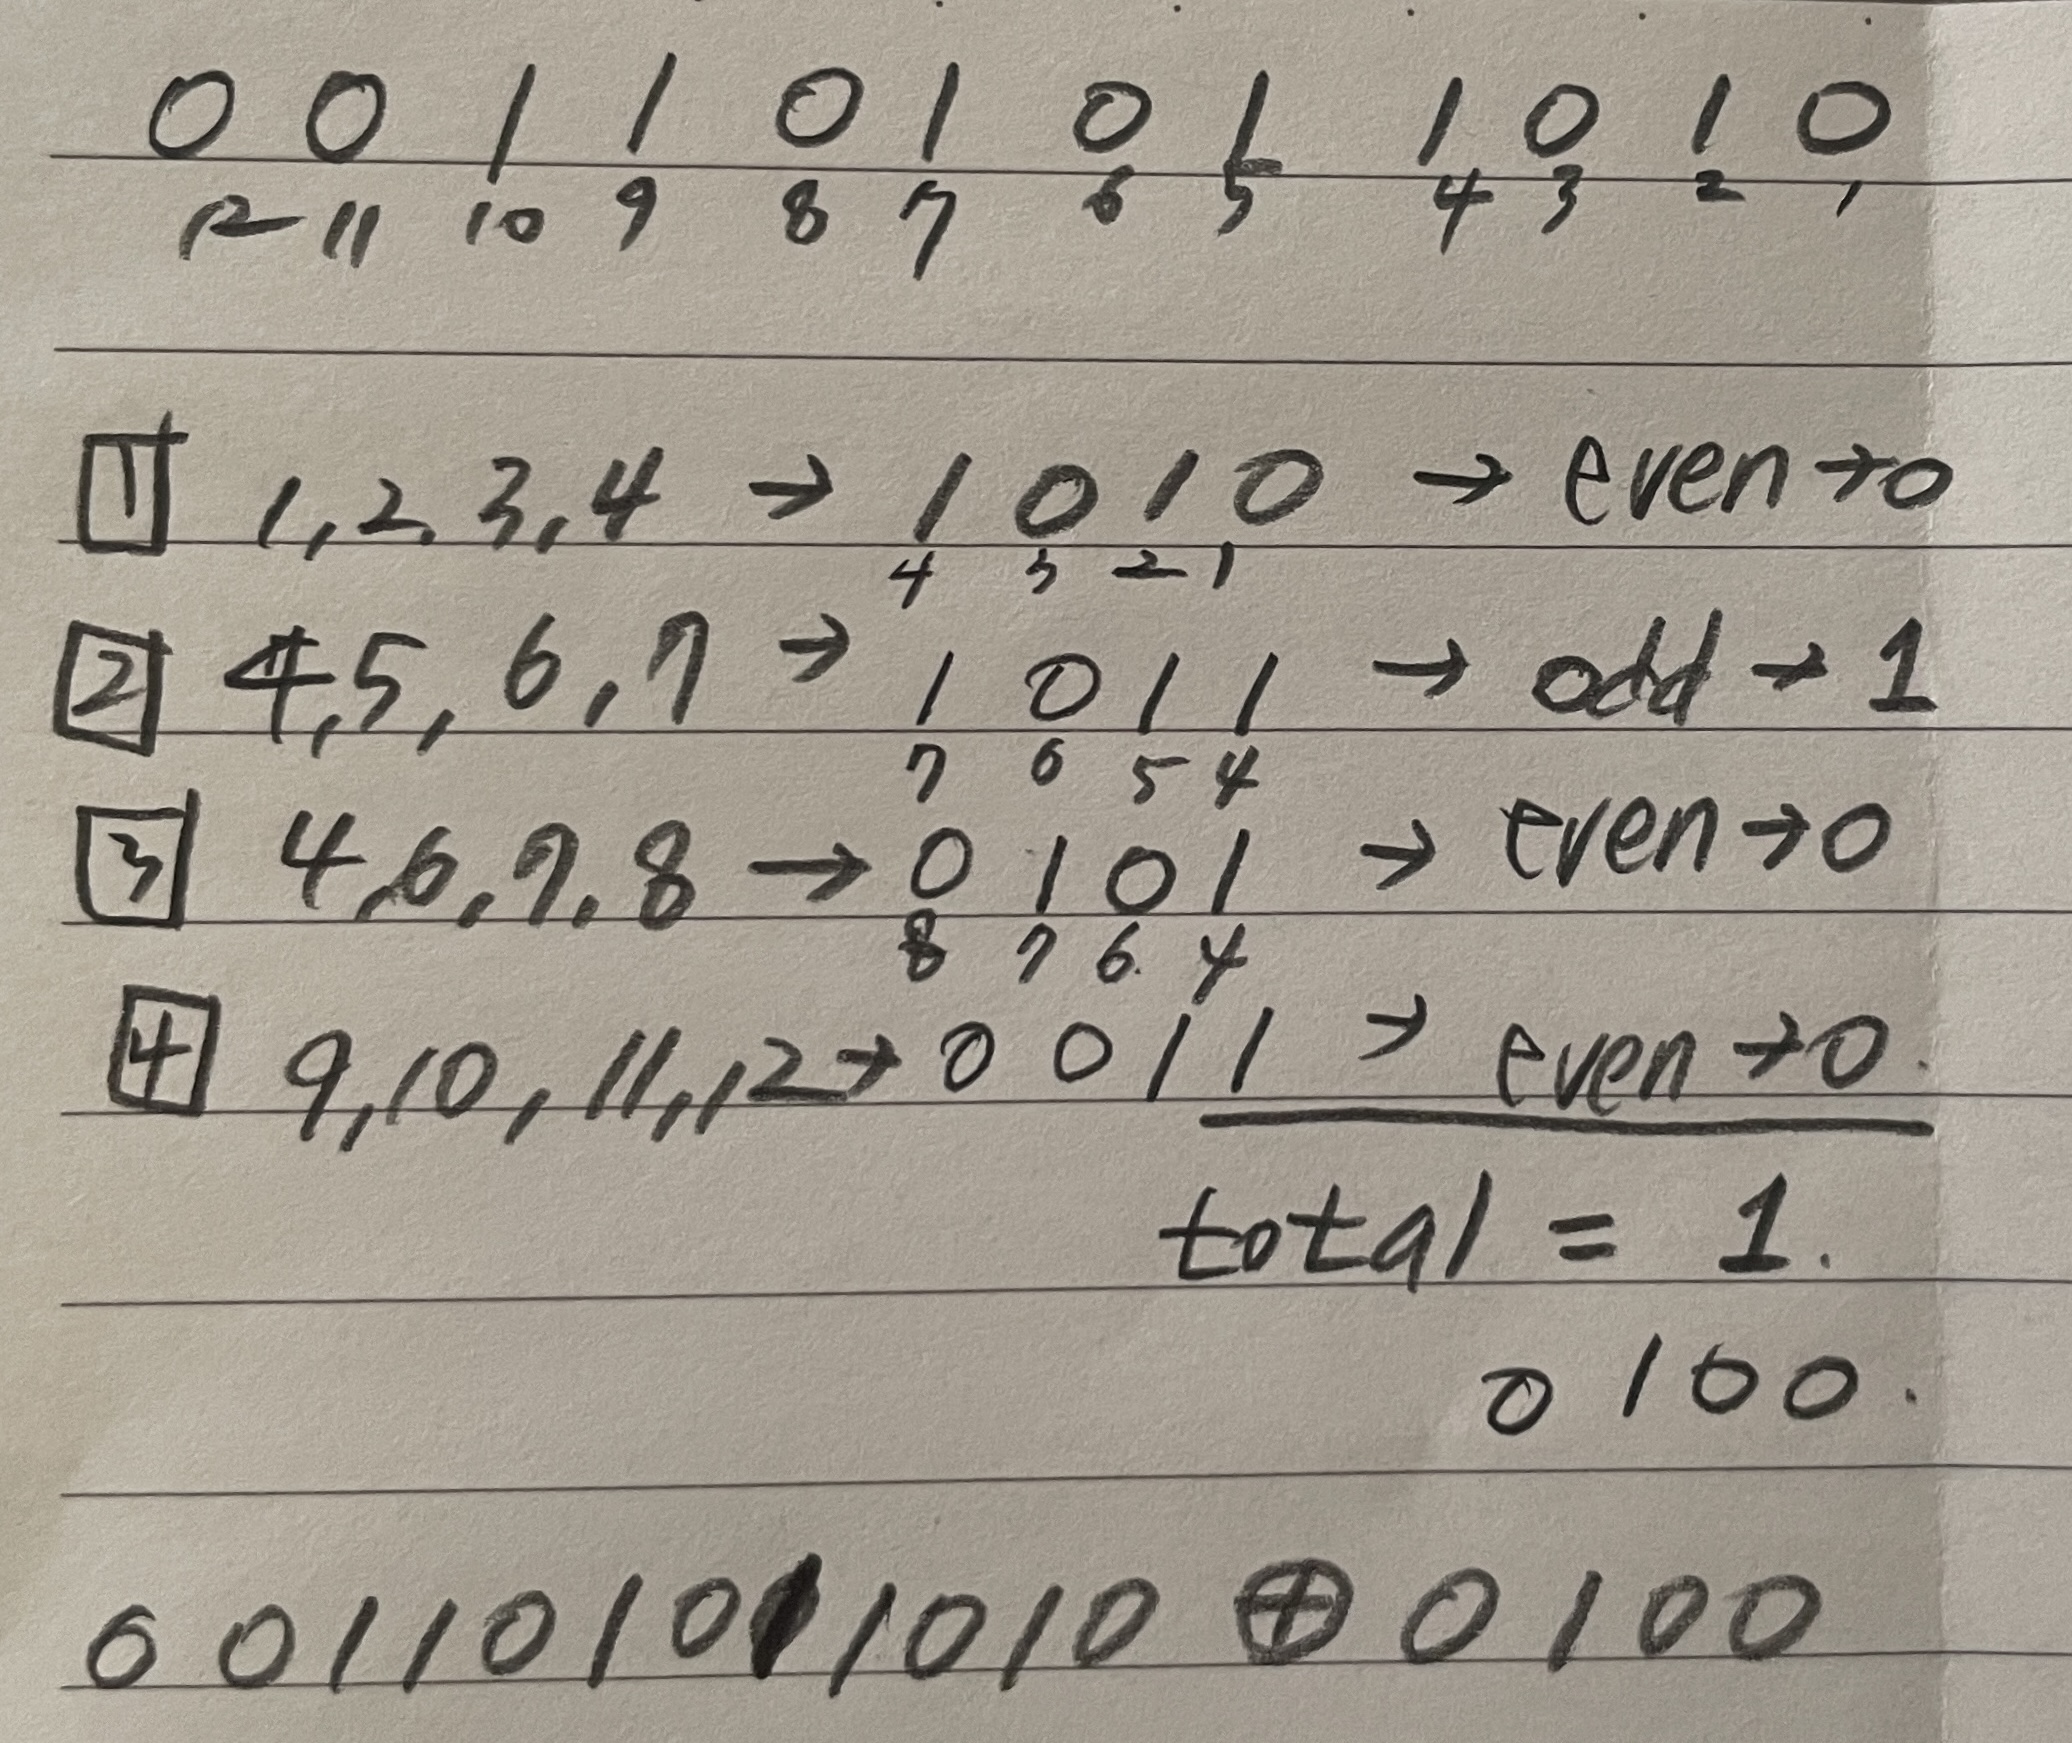 0 0 1 1 0 1 0 1 1 0 1 0
12 11 10 9 8 7 6 5 4 3 2 1
1 1,2,3,4 → 1 0 1 0 → even → 0
4 3 2 1
2 4,5,6,7 → 1 0 1 1 → odd → 1
7 6 5 4
3 4,6,7,8 → 0 1 0 1 → even → 0
8 7 6 4
4 9,10,11,12 → 0 0 1 1 → even → 0.
total = 1.
0 1 0 0.
0 0 1 1 0 1 0 1 1 0 1 0 ⊕ 0 1 0 0